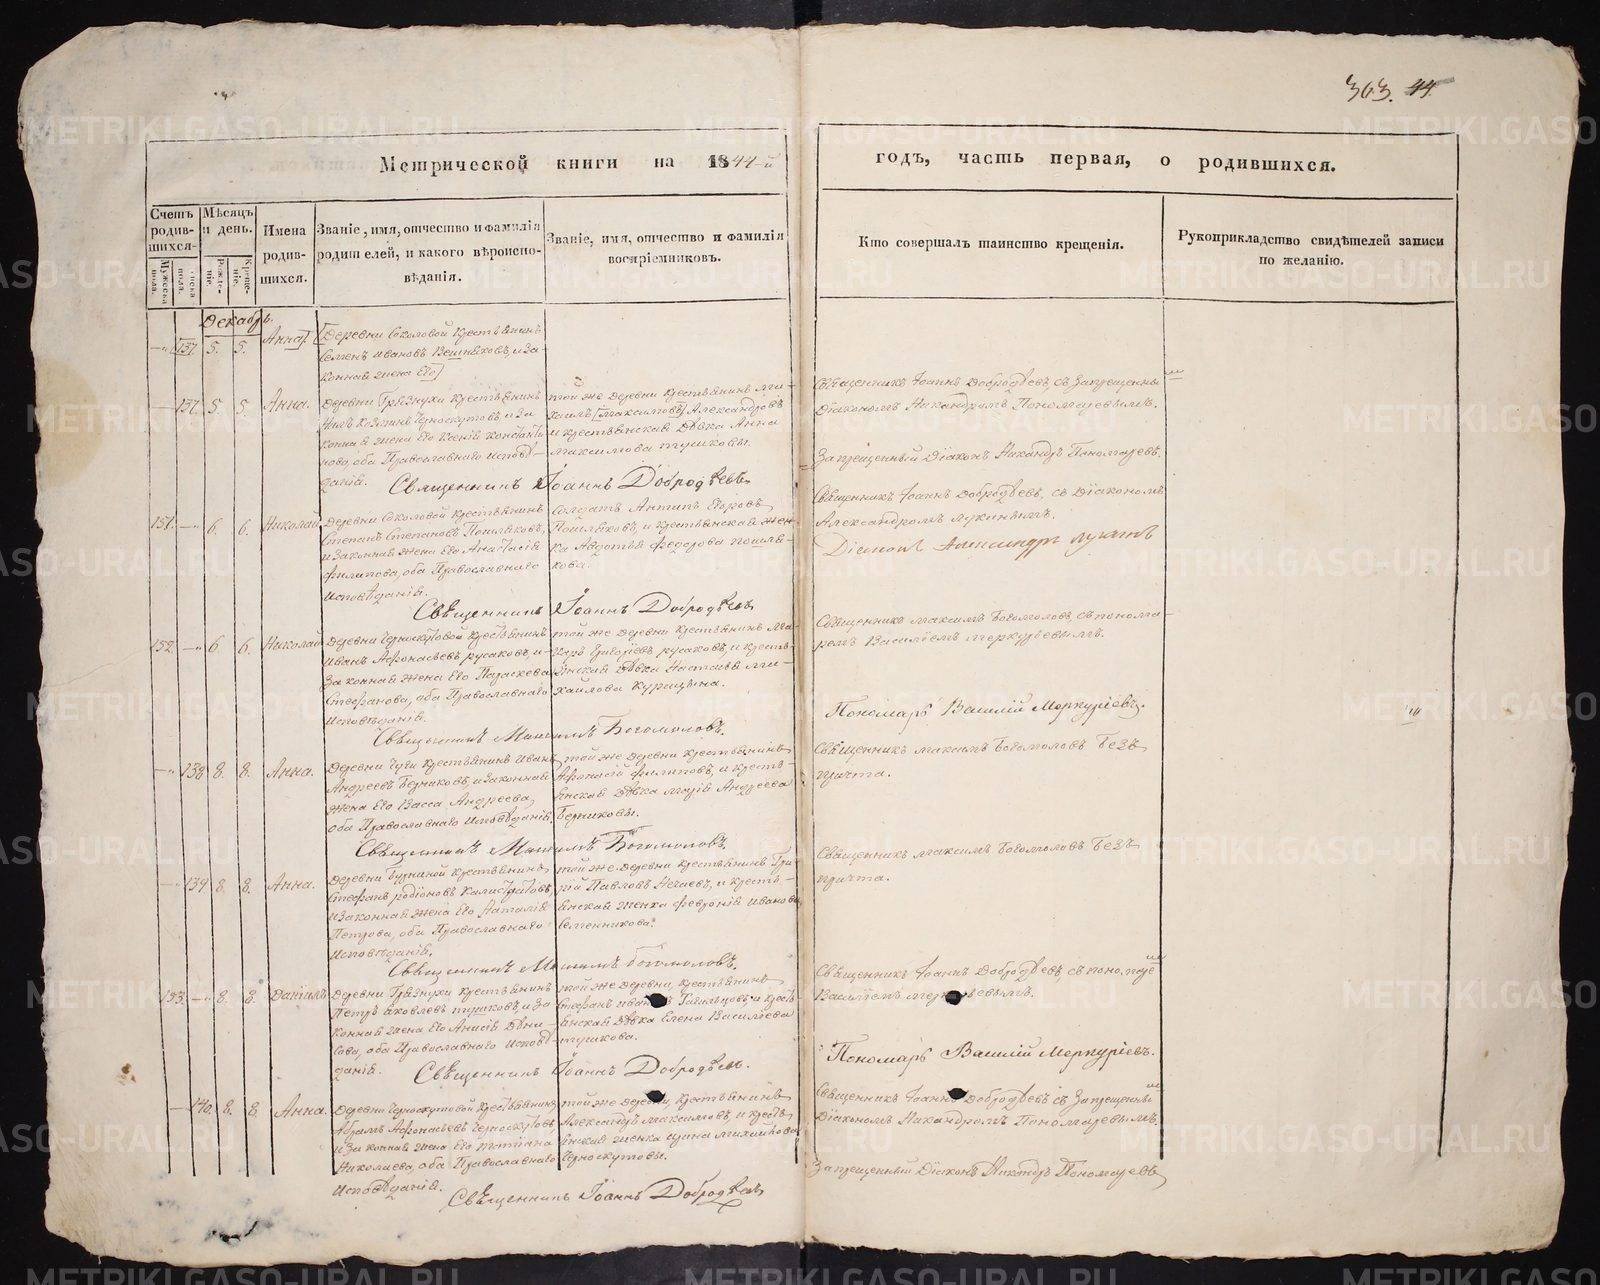 363. 44.
Метрической книги на 1844-й годъ, часть первая, о родившихся.
Счетъ родившихся.
Мужеска пола.
Женска пола.
Мѣсяцъ и день.
Рожденіе.
Крещеніе.
Имена родившихся.
Званіе, имя, отчество и фамилія родителей, и какого вѣроисповѣданія.
Званіе, имя, отчество и фамилія воспріемниковъ.
Кто совершалъ таинство крещенія.
Рукоприкладство свидѣтелей записи по желанію.
Декабрь.
137. 5. 5. Анна
Деревни Соколовой крестьянинъ
Семенъ Ивановъ Вешняковъ, и за-
конная жена Его
137. 5. 5. Анна.
Деревни Грязнухи крестьянинъ
Козминъ Черноскутовъ, и за
конная жена Его Ксенія Константи
нова, оба Православнаго исповѣ-
данія.
той же деревни крестьянинъ Ми-
хаилъ [Максимовъ] Александровъ
и крестьянская дѣвка Анна
Максимова Тушковы.
Священникъ Іоаннъ Добродѣевъ съ Запрещеннымъ
Діакономъ Никандромъ Пономаревымъ.
Запрещенный Діаконъ Никандръ Пономаревъ.
Священникъ Іоаннъ Добродѣевъ
151. 6. 6. Николай
Деревни Соколовой крестьянинъ
Степанъ Степановъ Пошляковъ,
и законная жена Его Анастасія
Филипова, оба Православнаго
исповѣданія.
Солдатъ Антипъ Егоровъ
Пошляковъ, и крестьянская жен
ка Авдотья Федорова Пошля-
кова.
Священникъ Іоаннъ Добродѣевъ, съ Діакономъ
Александромъ Лукинымъ.
Діаконъ Александръ Лукинъ
Священникъ Іоаннъ Добродѣевъ
152. 6 6. Николай
Деревни Черноскутовой крестьянинъ
Иванъ Афонасьевъ Русаковъ, и
законная жена Его Параскева
Стефанова, оба Православнаго
исповѣданія.
той же деревни крестьянинъ Ма-
каръ Григорьевъ Русаковъ, и кресть-
янская дѣвка Настасья Ми-
хайлова Курицына.
Священникъ Максимъ Богомоловъ, съ понома-
ремъ Василіемъ Меркурьевымъ.
Пономарь Василій Меркуріевъ.
Священникъ Максимъ Богомоловъ.
138. 8. 8. Анна.
Деревни крестьянинъ Иванъ
Андреевъ Берниковъ, и законная
жена Его Васса Андреева,
оба Православнаго исповѣданія.
той же деревни крестьянинъ
Афонасій Филиповъ, и кресть-
янская дѣвка Марія Андреева
Берниковы.
Священникъ Максимъ Богомоловъ безъ
причта.
Священникъ Максимъ Богомоловъ.
139 8. 8. Анна.
Деревни Бурниной крестьянинъ
Стефанъ Родіоновъ Калистратовъ,
и законная жена Его Наталія
Петрова, оба Православнаго
исповѣданія.
той же деревни крестьянинъ Гри-
рій Павловъ Нечаевъ, и кресть-
янская женка Февронія Иванова
Семенникова.
Священникъ Максимъ Богомоловъ безъ
причта.
Священникъ Максимъ Богомоловъ.
153. 8. 8. Даніилъ
Деревни Грязнухи крестьянинъ
Петръ Яковлевъ Тушковъ, и за
конная жена Его Анисія Дени-
сова, оба Православнаго исповѣ-
данія.
той же деревни, крестьянинъ
Стефанъ и крестъ
янская дѣвка Елена Васильева
Тушкова.
Священникъ Іоаннъ Добродѣевъ, съ пономаремъ
Василіемъ Меркурьевымъ.
Пономарь Василій Меркуріевъ.
Священникъ Іоаннъ Добродѣевъ.
140. 8. 8. Анна.
Деревни Черноскутовой крестьянинъ
Абрамъ Афонасьевъ Черноскутовъ
и законная жена Его Татіана
Николаева, оба Православнаго
исповѣданія.
той же деревни, крестьянинъ
Александръ Максимовъ, и кресть
янская женка Ирина Михайлова
Черноскутовы.
Священникъ Іоаннъ Добродѣевъ съ Запрещеннымъ
Діакономъ Никандромъ Пономаревымъ.
Запрещенный Діаконъ Никандръ Пономаревъ
Священникъ Іоаннъ Добродѣевъ
METRIKI.GASO-URAL.RU